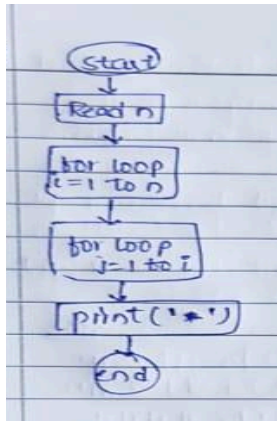 Start
Read n
for loop
i=1 to n
for loop
j=1 to i
print('*')
end